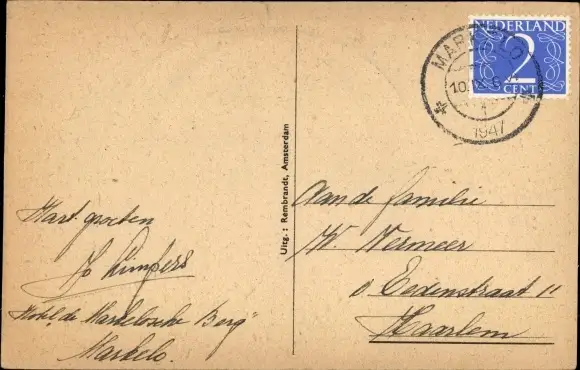 NEDERLAND
2
CENT
MARKELO
1947
Uitg.: Rembrandt, Amsterdam
Aan de familie
W. Vermeer
Eedenstraat 11
Haarlem
Hart. groeten
Jo
Hotel "de Markelosche Berg"
Markelo.